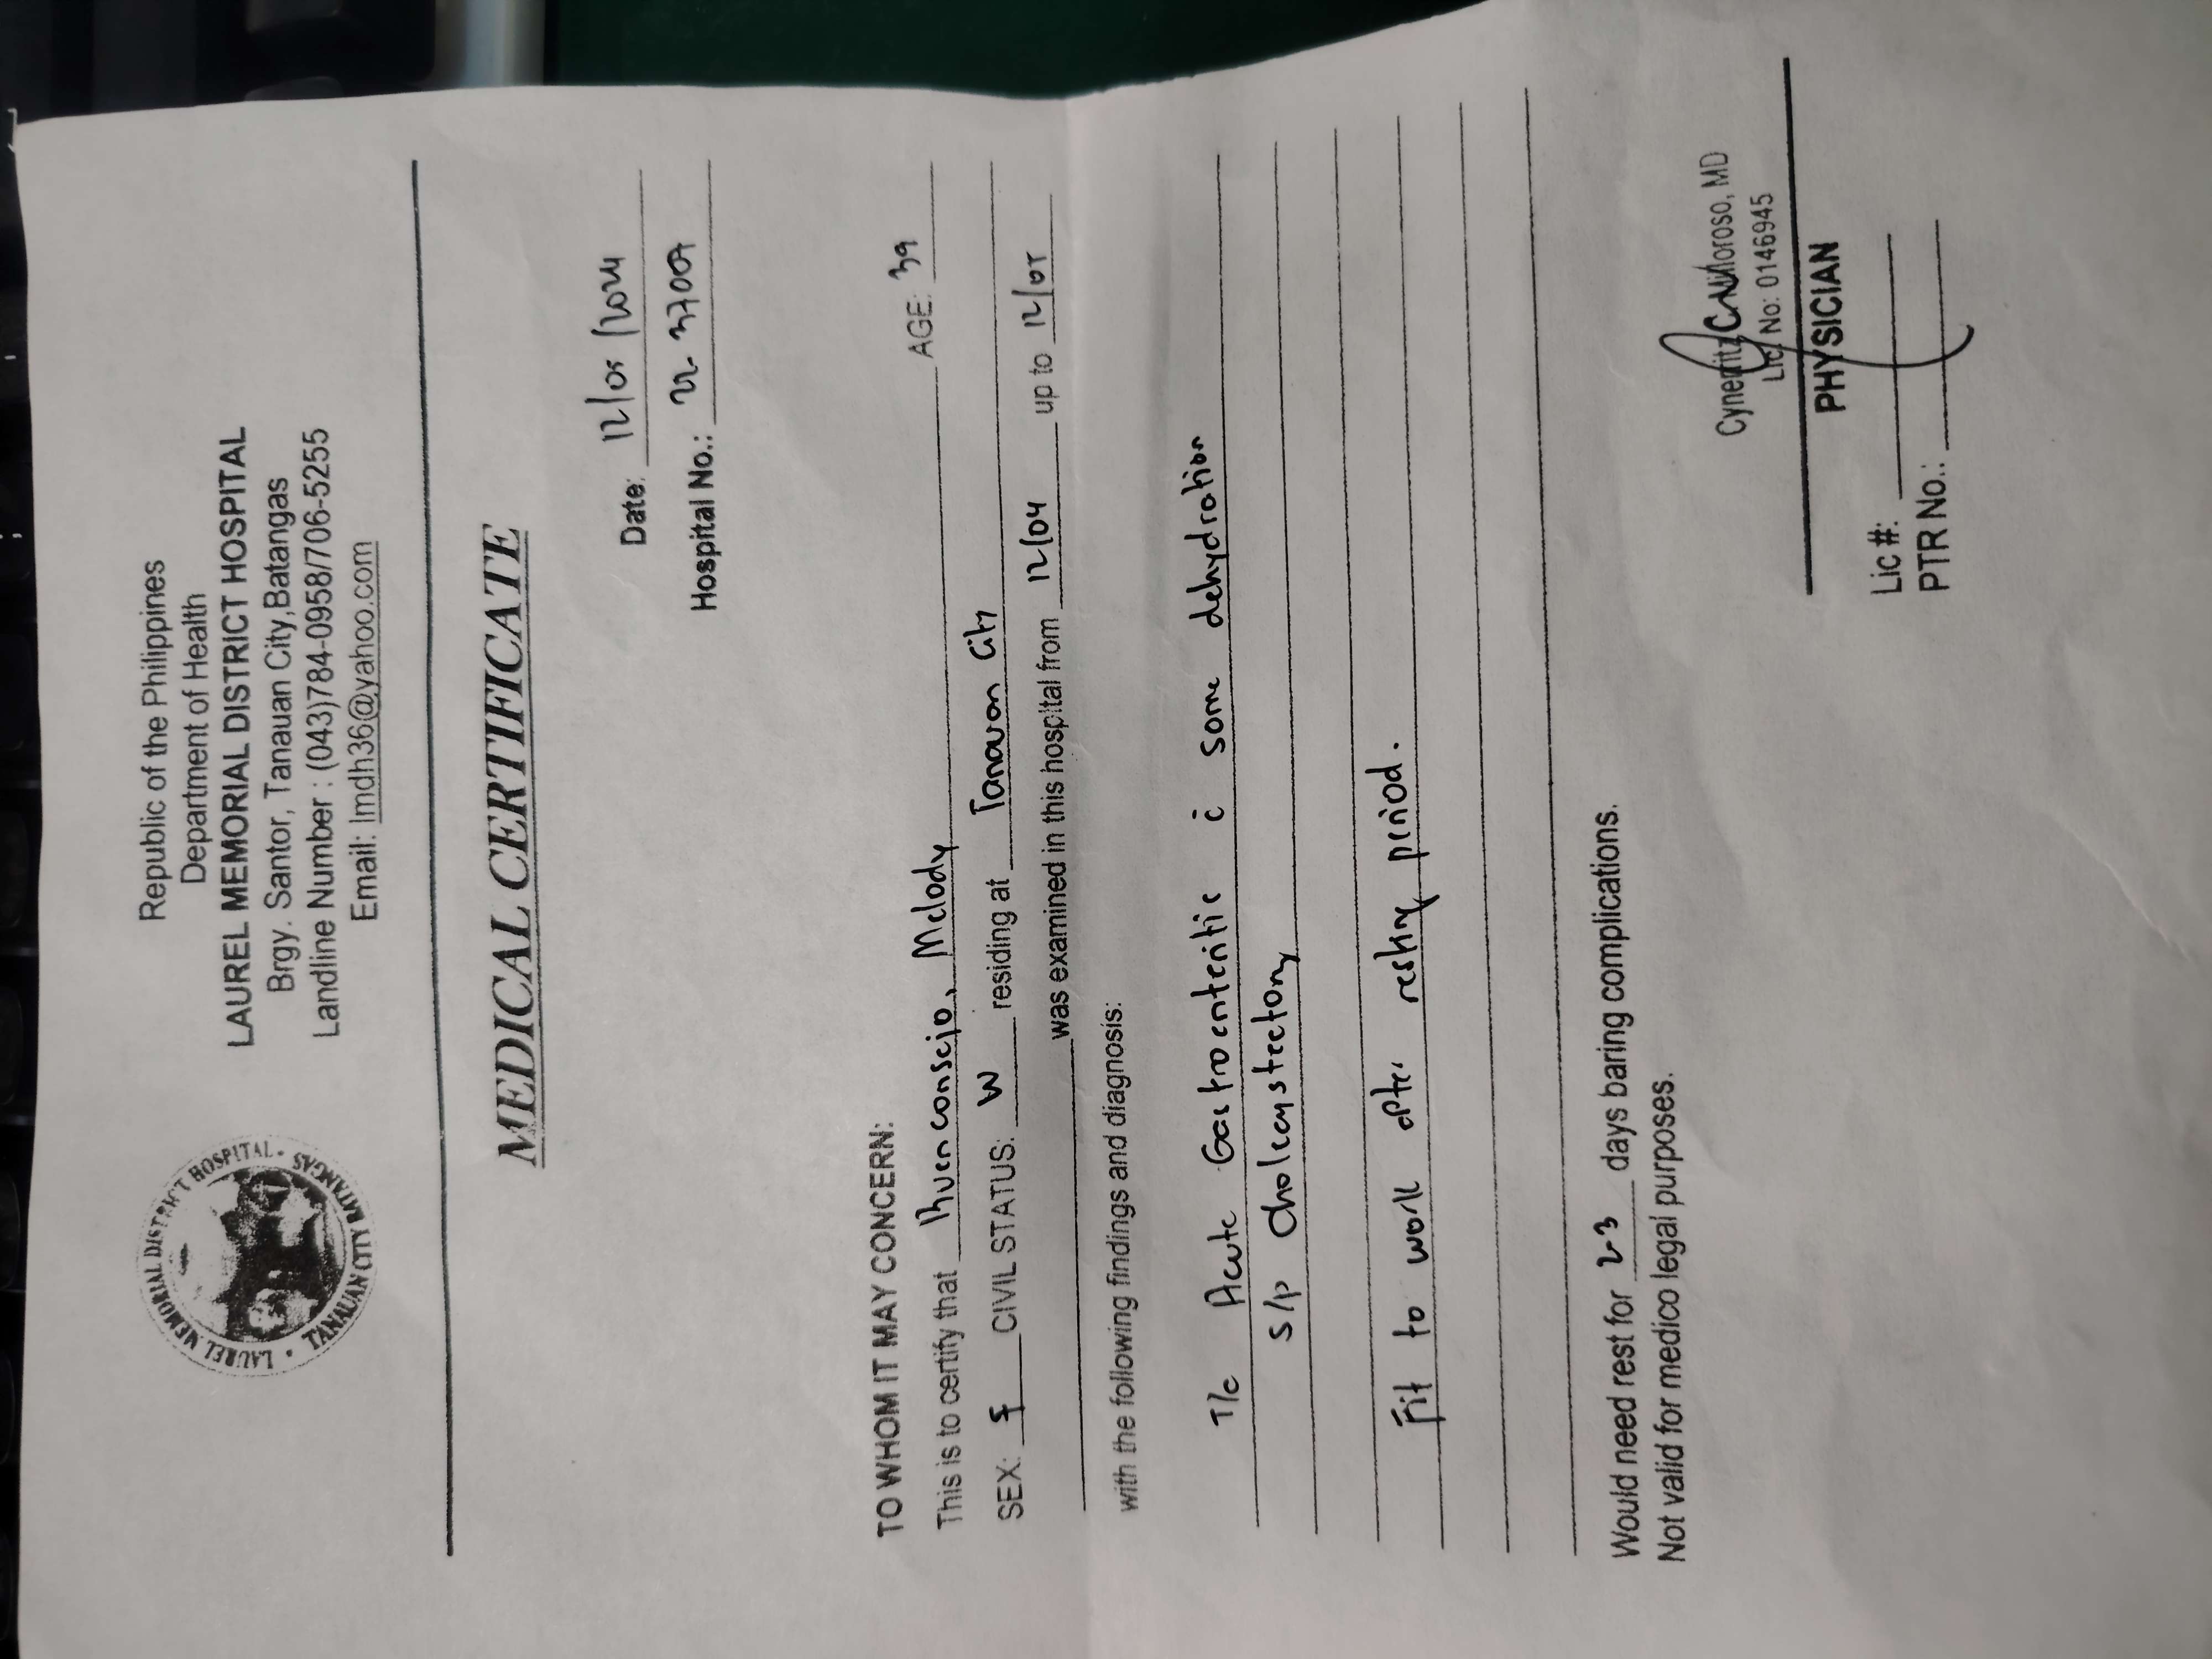 LAUREL MEMORIAL DISTRICT HOSPITAL • TANAUAN CITY BATANGAS •
Republic of the Philippines
Department of Health
LAUREL MEMORIAL DISTRICT HOSPITAL
Brgy. Santor, Tanauan City,Batangas
Landline Number : (043)784-0958/706-5255
Email: lmdh36@yahoo.com
MEDICAL CERTIFICATE
Date: 12/05/2024
Hospital No.:
TO WHOM IT MAY CONCERN:
This is to certify that Buenconsejo, Melody AGE: 39
SEX: F CIVIL STATUS: W residing at Tanauan City
was examined in this hospital from 12/04 up to 12/05
with the following findings and diagnosis:
T/c Acute Gastroenteritis c̄ some dehydration
s/p cholecystectomy
Fit to work after resting period.
Would need rest for 2-3 days baring complications.
Not valid for medico legal purposes.
MD
Lic. No: 0146945
PHYSICIAN
Lic #:
PTR No.: